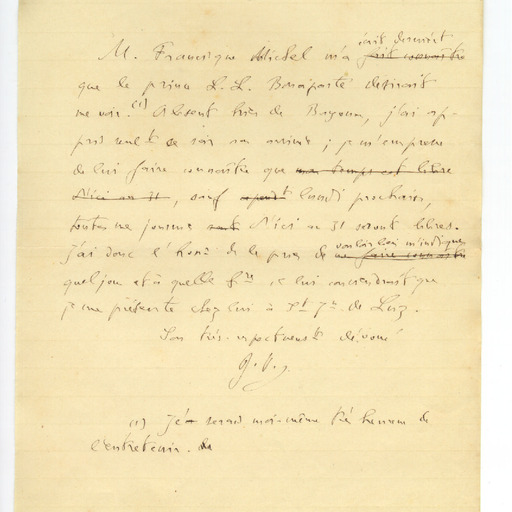 écrit dernièrt
M. Francisque Michel m'a fait connaître
que le prince L. L. Bonaparte désirait
me voir.(1) Absent hier de Bayonne, j'ai ap-
pris seult ce soir son arrivée ; je m'empresse
de lui faire connaître que mon temps est libre
d'ici au 31, sauf lundi prochain,
toutes mes journées d'ici au 31 seront libres.
vouloir bien m'indiquer
J'ai donc l'honr de le prier de me faire connaître
quel jour et à quelle hre il lui conviendrait que
je me présente chez lui à St Jn de Luz.
Son très respectueuxt dévoué
(1) Je serais moi-même très heureux de
l'entretenir. de